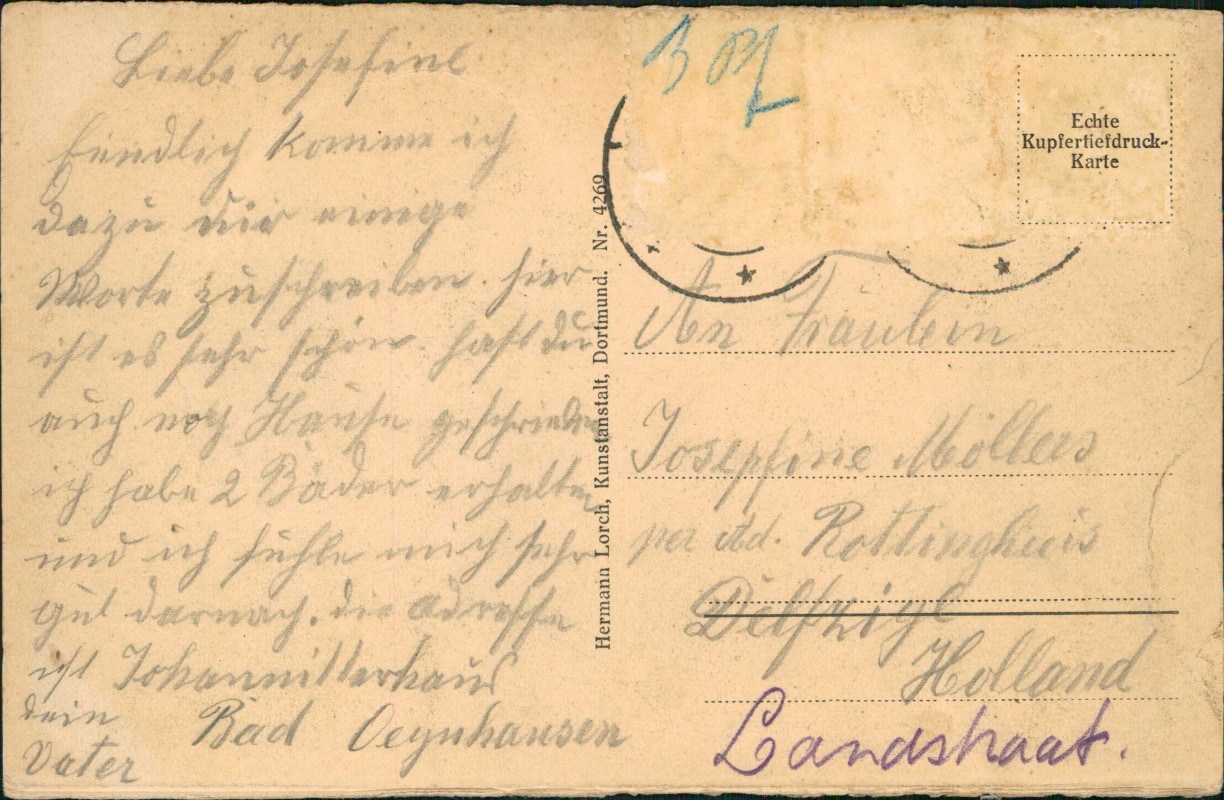 Liebe Josefine
Enndlich komme ich
dazu dir einige
Worte zuschreiben. hier
ist es sehr schön. hast du
auch noch Hause geschrieben
ich habe 2 Bäder erhalten
und ich fühle mich sehr
gut darnach. die Adresse
ist Johannitterhaus
Bad Oeynhausen
dein
Vater
Hermann Lorch, Kunstanstalt, Dortmund. Nr. 4269
Echte
Kupfertiefdruck-
Karte
An Fräulein
Josepfine Möllers
per Ad. Rottinghuis
Delfzigl
Holland
Landstraat.